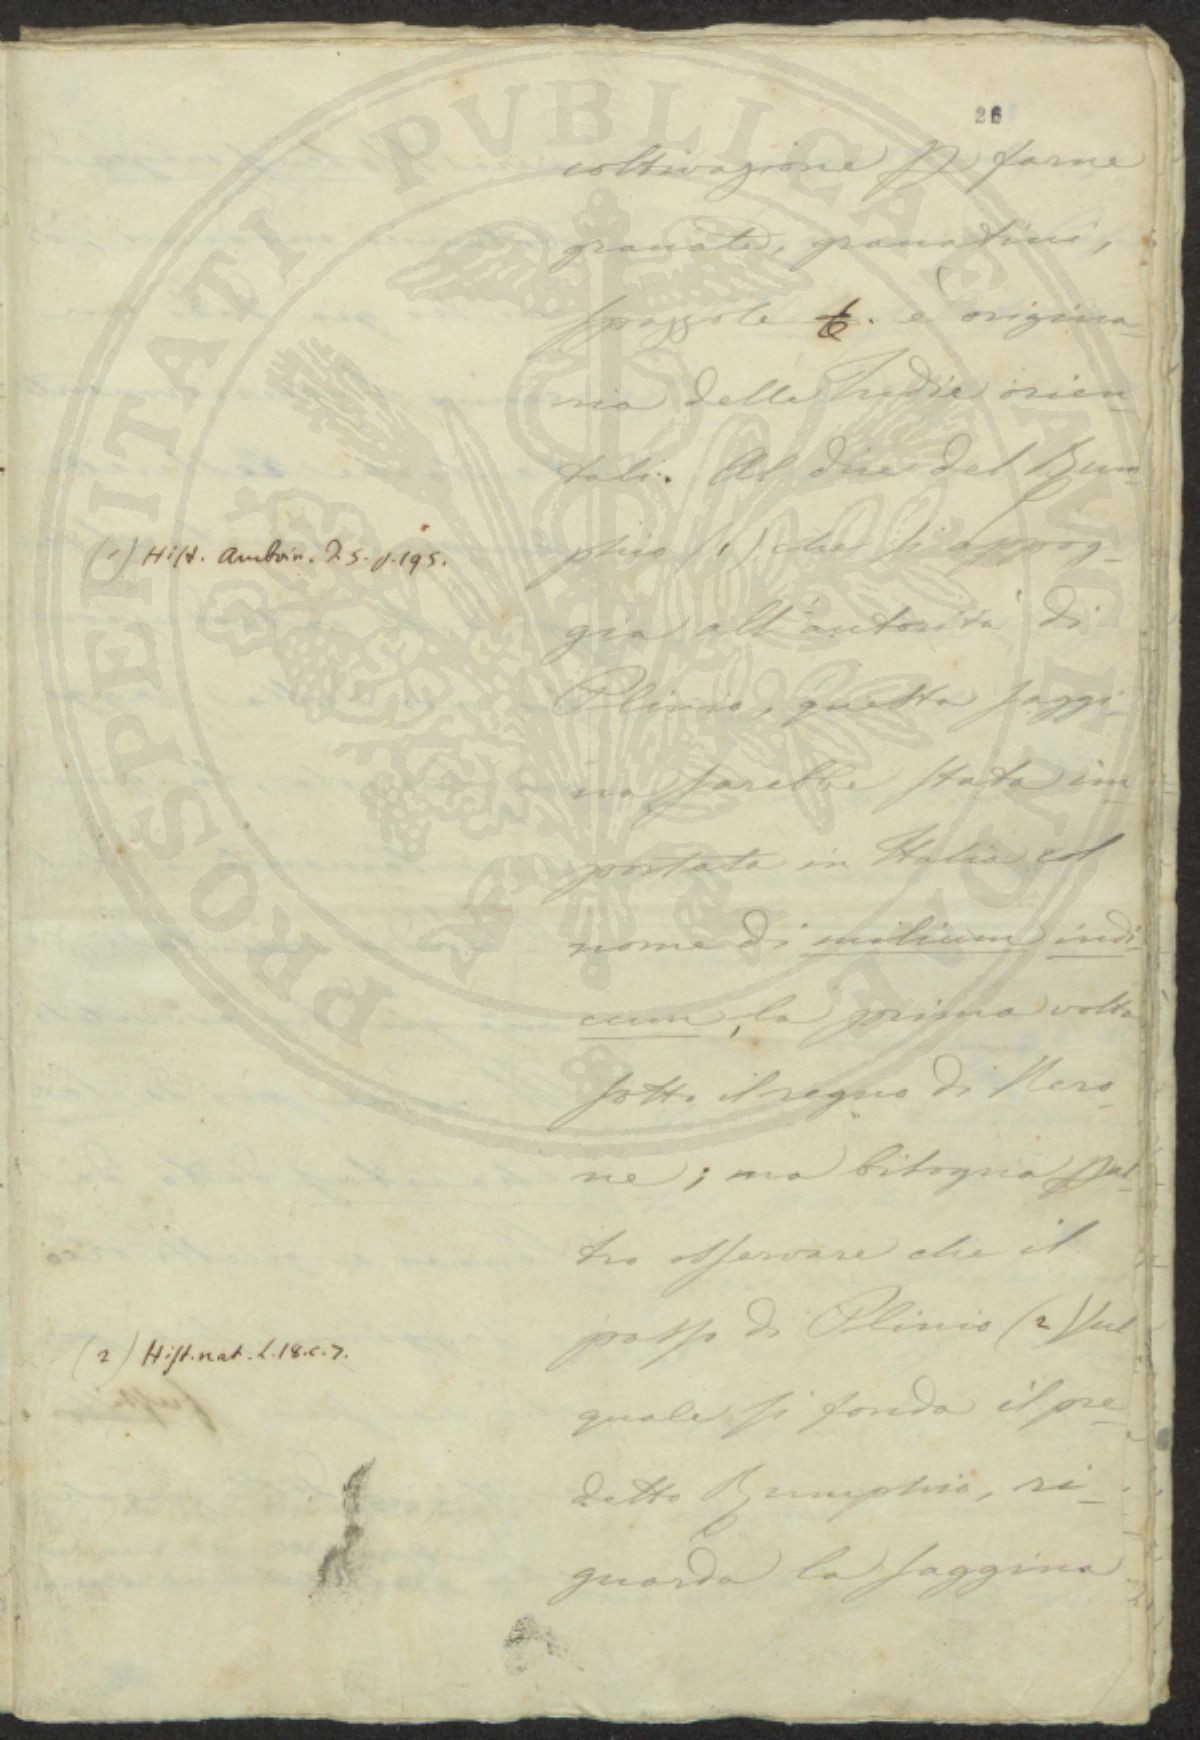 26
coltivazione p farne
granate, granatini,
spazzole &. è origina-
ria delle Indie orien-
tali. Al dire del Rum-
phio (1) che si appog-
gia all'autorità di
Plinio, questa saggi-
na sarebbe stata im-
portata in Italia col
nome di milium indi-
cum, la prima volta
sotto il regno di Nero-
ne; ma bisogna pel-
tro osservare che il
passo di Plinio (2) sul
quale si fonda il pre-
detto Rumphio, ri-
guarda la saggina
(1) Hist. Amboin. T. 5. p. 195.
(2) Hist. nat. L. 18. c. 7.
PROSPERITATI PUBLICAE AUGENDAE